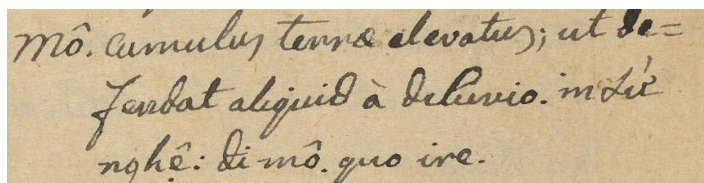 Mô. cumulus terræ elevatus; ut de=
fendat aliquid à diluvio. in Xứ
nghệ: đi mô. quo ire.